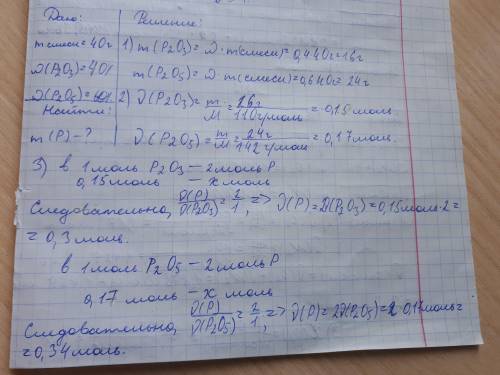 Дано: Решение:
m смеси = 40г 1) m(P2O3) = ω · m(смеси) = 0,4·40 = 16г
ω(P2O3) = 40% m(P2O5) = ω · m(смеси) = 0,6·40 = 24г
ω(P2O5) = 60% 2) ν(P2O3) = m/M = 16г/110г/моль = 0,15 моль
Найти:
m(P) - ? ν(P2O5) = m/M = 24г/142г/моль = 0,17 моль.
3) в 1 моль P2O3 — 2 моль P
0,15 моль — x моль
Следовательно, ν(P)/ν(P2O3) = 2/1, => ν(P) = 2ν(P2O3) = 0,15 моль · 2 =
= 0,3 моль.
в 1 моль P2O5 — 2 моль P
0,17 моль — x моль
Следовательно, ν(P)/ν(P2O5) = 2/1, => ν(P) = 2ν(P2O5) = 2 · 0,17 моль =
= 0,34 моль.